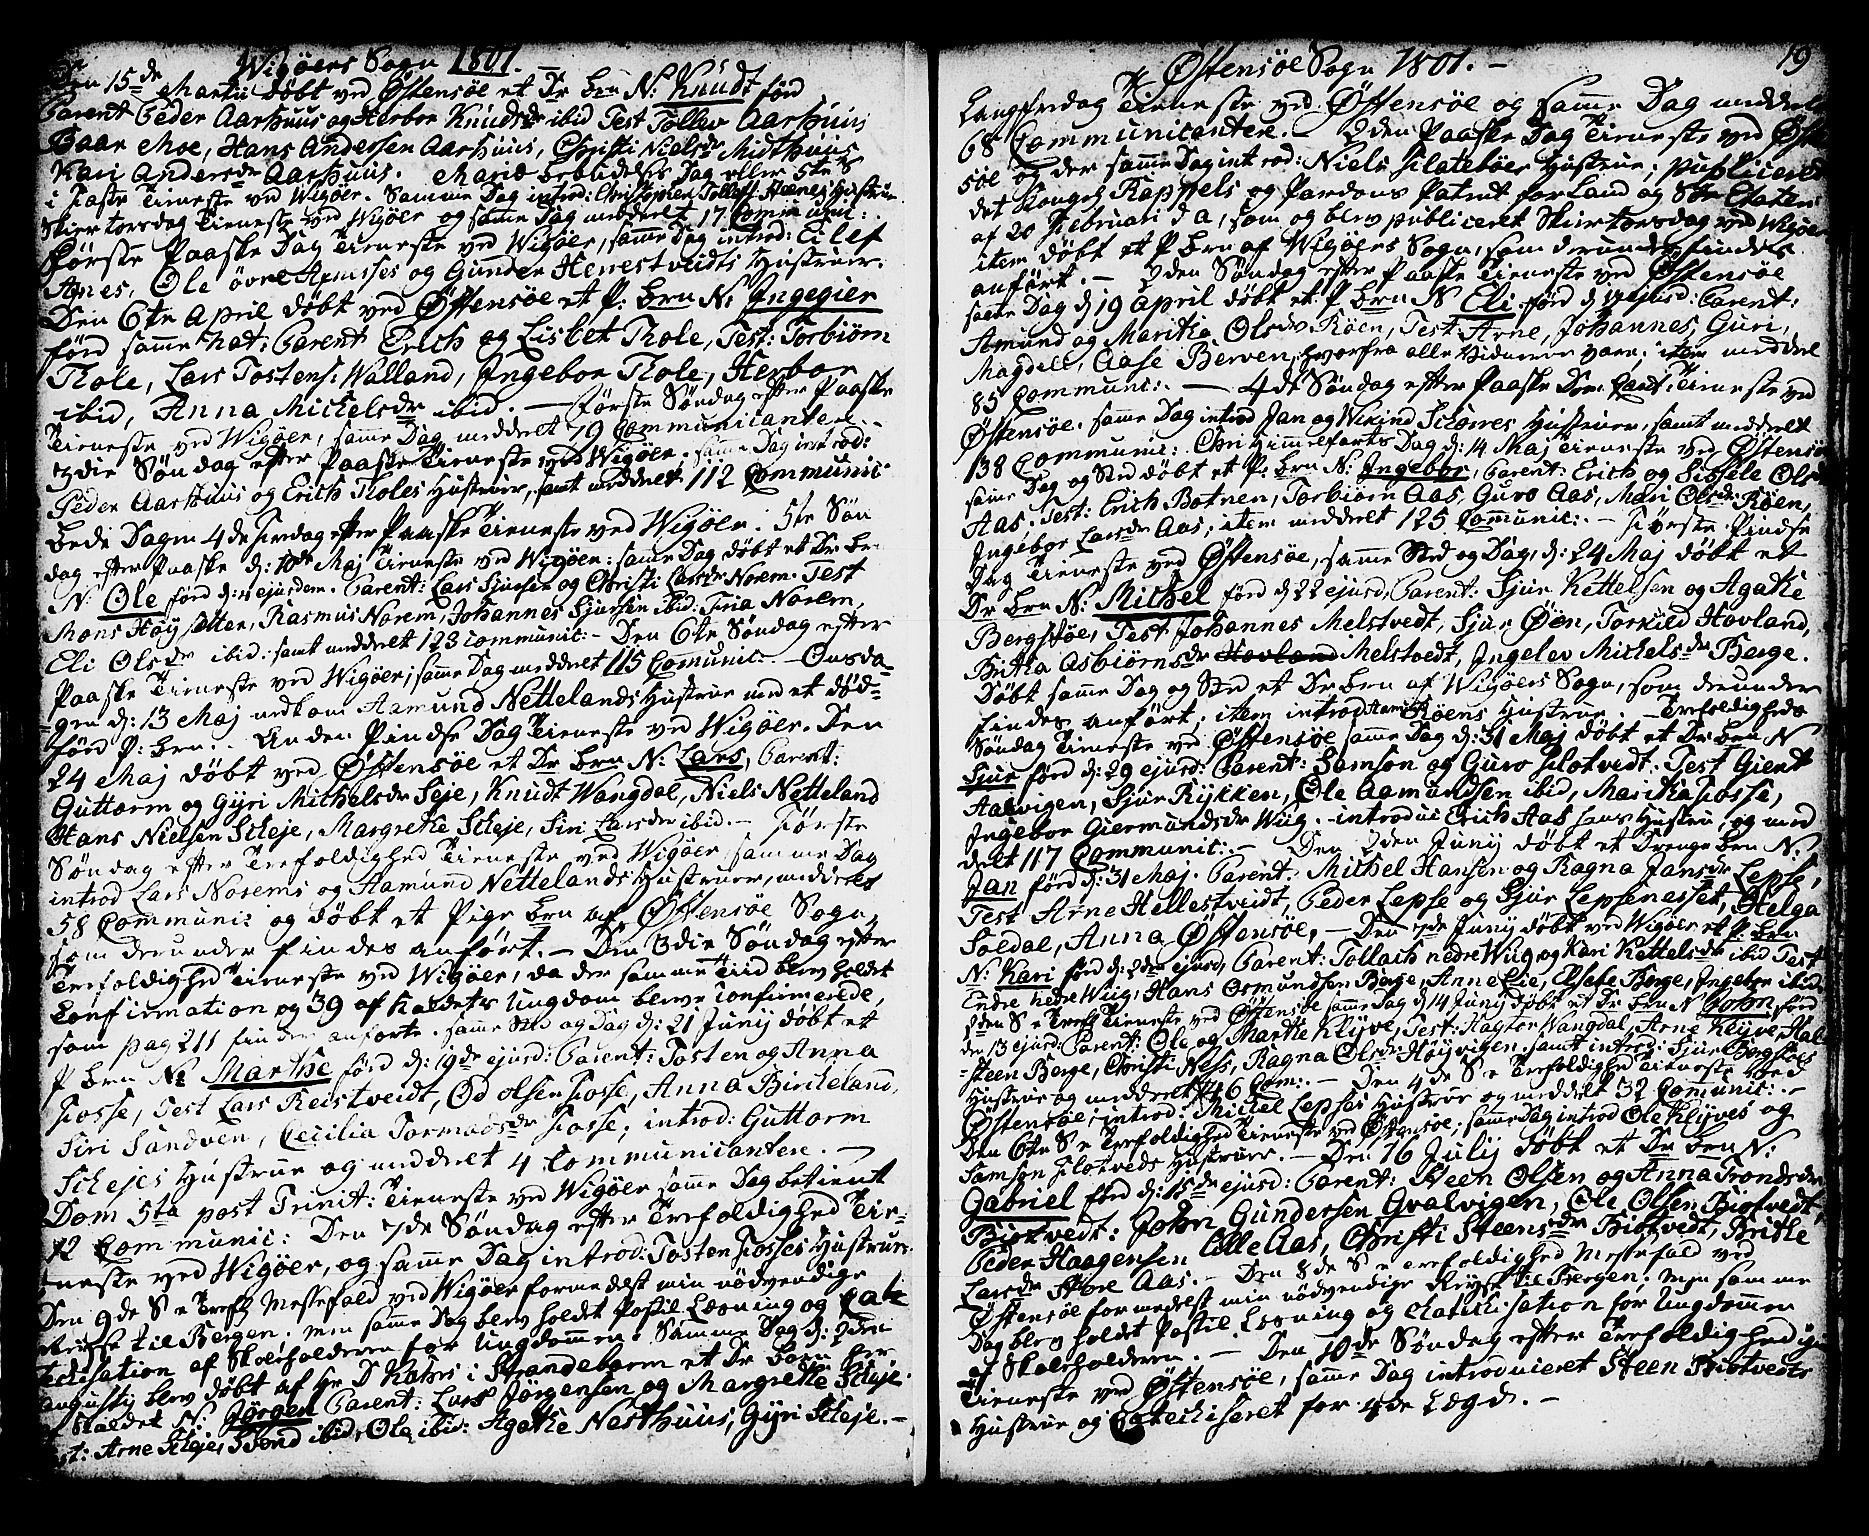 Wigöers Sogn 1801.
Den 15de Martii döbt ved Östensöe et Dr brn N: Knudt förd
Parent Peder Aarhuus og Herbor Knudsdr ibid Test Tollev Aarhuus
Baar Moe, Hans Andersen Aarhuus, Christi Nielsdr Midthuus
Kari Andersdr Aarhuus. Mariæ bebudelses Dag eller 5te S
i Faste Tieneste ved Wigöer. Samme Dag introd: Christopher Tollefs Hustrue
Skiertorsdag Tieneste ved Wigöer og samme Dag meddeelt 17 Communic:
Förste Paaske Dag Tieneste ved Wigöer, samme Dag introd: Eilef
Arnes, Ole övre og Gunder Henestveidts Hustruer.
Den 6te April döbt ved Östensöe et P: brn N: Ingegier
förd samme nat: Parent Erich og Lisbet Thole, Test: Torbiörn
Thole, Lars Tostens: Walland, Ingebor Thole, Herbor
ibid, Anna Michelsdr ibid. — Förste Söndag efter Paaske
Tieneste ved Wigöer, samme Dag meddeelt 19 Communicanter.
3die Söndag efter Paaske Tieneste ved Wigöer. samme Dag introd:
Peder Aarhuus og Erich Tholes Hustruer, samt meddeelt 112 Communic.
Bede Dagen 4de Fredag efter Paaske Tieneste ved Wigöer. 5te Sön
dag efter Paaske d: 10de Maj Tieneste ved Wigöer: samme Dag döbt et Dr br
N: Ole förd d: ejusdem. Parent: Lars Sjursen og Christi Larsdr Norem. Test
Mons Höysetter, Rasmus Norem, Johannes Sjursen ibid: Siria Norem,
Eli Olsdr ibid: samt meddeelt 123 communic: — Den 6te Söndag efter
Paaske Tieneste ved Wigöer; samme Dag meddeelt 115 Communic. — Onsda-
gen d: 13 Maj nedkom Aamund Nettelands Hustrue med et död-
förd P: brn. — Anden Pindse Dag Tieneste ved Wigöer. Den
24 Maj döbt ved Östensöe et Dr brn N: Lars, Parent:
Guttorm og Gyri Michelsdr Seje, Knudt Wangdal, Niels Netteland
Hans Nielsen Scheje, Margrethe Scheje, Siri Larsdr ibid. — Förste
Söndag efter Trefoldighed Tieneste ved Wigöer samme Dag
introd Lars Norems og Aamund Nettelands Hustruer, meddeelt
58 Communi: og döbt et Pige brn af Östensöe Sogn,
som derunder findes anfört. — Den 3die Söndag efter
Trefoldighed Tieneste ved Wigöer, da der samme Tiid blev holdet
Confirmation og 39 af Kaldets Ungdom bleve confirmerede,
som pag 211 findes anförte. samme Sted og Dag d: 21 Junij döbt et
P brn N: Marthe förd d: 19de ejusd: Parent: Tosten og Anna
Fosse, Test Lars Reistveidt, Od olsen Fosse, Anna Birkeland,
Siri Sandven, Cecilia Tormodsdr Fosse; introd: Guttorm
Schejes Hustrue og meddeelt 4 Communicantere. —
Dom 5ta post Trinit: Tieneste ved Wigöer samme Dag betient
12 Communic: Den 7de Söndag efter Trefoldighed Tie-
neste ved Wigöer, og samme Dag introd: Tosten Fosses Hustrue.
Den 9de S e Trefh Messefald ved Wigöer formedelst min nödvendige
Reise til Bergen. men samme Dag blev holdet Postil Læsning og Cate
techisation af Skoleholderen for Ungdommen. Samme Dag d: 2den
augustij blev döbt af Hr D Kahrs i Strandebarm et Dr Barn her
af Kaldet N: Jörgen Parent: Lars Jörgensen og Margrethe Scheje.
Test: Arne Scheje, Trond ibid, Ole ibid: Agathe Nesthuus, Gyri Scheje. —
Östensöe Sogn 1801. —
19
Langfredag Tieneste ved Östensöe og samme Dag meddeelt
68 Communicantere. 2den Paaske Dag Tieneste ved Östen
söe og der samme Dag introd: Niels Flateböes Hustrue; publiceret
det Kongel Rappels og Pardons Patent for Land og Söe Etaten
af 20 Februari d a, som og blev publiceret Skiertorsdag ved Wigöer
item döbt et P brn af Wigöers Sogn, som derunder findes
anfört. — 2den Söndag efter Paaske Tieneste ved Östensöe
samme Dag d 19 April döbt et P brn N Eli förd d 17 ejusd: Parent:
Amund og Maritha Olsdr Röen, Test: Arne, Johannes, Guri,
Magdeli, Aase Berven, hvorfra alle Vidnerne vare; item meddeel
85 Communic: — 4de Söndag efter Paaske Tieneste ved
Östensöe. samme Dag introd Jan og Wikind Schörres Hustruer, samt meddeelt
138 Communic: Chri Himmelfarts Dag d: 14 Maj Tieneste ved Östensöe
samme Dag og Sted döbt et P: brn N: Ingebor, Parent: Erich og Sissele Olsdr
Aas. Test: Erich Botnen, Torbiörn Aas, Guro Aas, Mari Olsdr Röen,
Ingebor Larsdr Aas; item meddeelt 125 Communic: — Förste Pindse
Dag Tieneste ved Östensöe, samme Sted og Dag, d: 24 Maj döbt et
Dr brn N: Michel förd d 22 ejusd, Parent: Sjur Kettelsen og Agathe
Bergstöe, Test Johannes Melstvedt, Sjur Öen, Torkild Hovland,
Britha Asbiörnsdr Hovland Melstvedt, Ingelev Michelsdr Berge.
Döbt samme Dag og Sted et Dr brn af Wigöers Sogn, som derunder
findes anfört; item introd Aamund Röens Hustrue. — Trefoldigheds
Söndag Tieneste ved Östensöe samme Dag d: 31 Maj döbt et Dr brn N
Sjur förd d: 29 ejusd: Parent: Samson og Guro Flotvedt. Test Gient
Aalvigen, Sjur Rykken, Ole Aamundsen ibid, Maritha Fosse,
Ingebor Giermundsdr Wiig. introduc Erich Aas hans Hustrue, og med
deelt 117 Communic: — Den 2den Junij döbt et Drenge brn N:
Jan förd d: 31 Maj. Parent: Michel Hansen og Ragna Jansdr Lepse,
Test Arne Hellestveidt, Peder Lepse og Sjur Lepsenesset, Helga
Soldal, Anna Östensöe, — Den 7de Junij döbt ved Wigöer et P: brn
N: Kari förd d: 2den ejusd, Parent: Tollach nedre Wiig og Kari Kettelsdr ibid Test
Endre nedre Wiig, Hans Osmundsen Berge, Anne Lie, Elsebe Berge, Ingebor ibid.
2den S e Trefh Tieneste ved Östensöe samme Dag d 14 Junij döbt et Dr brn N John förd
den 13 ejusd: Parent: Ole og Marthe Klyve, Test: Hagtor Wangdal, Arne Klyve, Hal
steen Berge, Christi Ness, Ragna Olsdr Höyvigen. samt introd: Sjur Bergstöes
Hustrue og meddeelt 146 Com: — Den 4de S e Trefoldighed Tieneste ved
Östensöe; introd: Michel Lepses Hustrue og meddeelt 32 Communic: —
Den 6te S e Trefoldighed Tieneste ved Östensöe; samme Dag introd Ole Klyves og
Samson Flotveds Hustruer. — Den 16 Julij döbt et Dr brn N:
Gabriel förd d: 15de ejusd: Parent: Steen Olsen og Anna Trondsdr
Biotvedt: John Gundersen Qvalvigen, Ole Olsen Biotvedt,
Peder Haagensen Lille Aas, Christi Steensdr Biotvedt, Brithe
Larsdr Store Aas. — Den 8de S e Trefoldighed Messefald ved
Östensöe formedelst min nödvendige Reyse til Bergen; men samme
Dag blev holdet Postil Læsning og Catechisation for Ungdommen
af Skoleholderen. — Den 10de Söndag efter Trefoldighed
Tieneste ved Östensöe, samme Dag introduceret Steen Biotvedts
Hustrue og Catechiseret for 4de Lægd. —